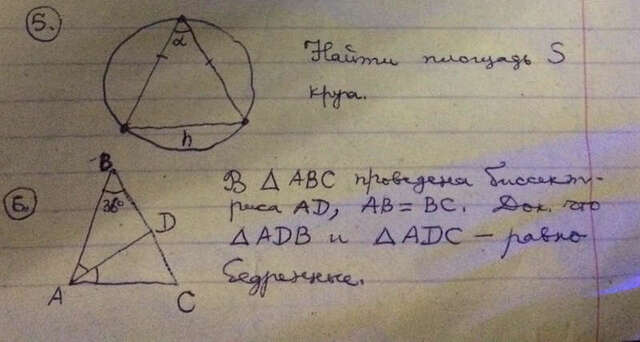 5.
α
h
Найти площадь S
круга.
6.
B
36°
D
A
C
В △ ABC проведена биссект-
риса AD, AB = BC. Док. что
△ADB и △ADC – равно
бедренные.